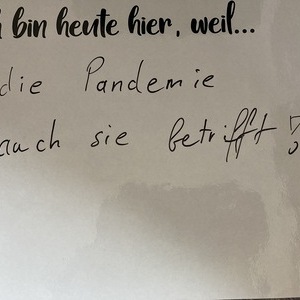 h bin heute hier, weil...
die Pandemie
auch sie betrifft!